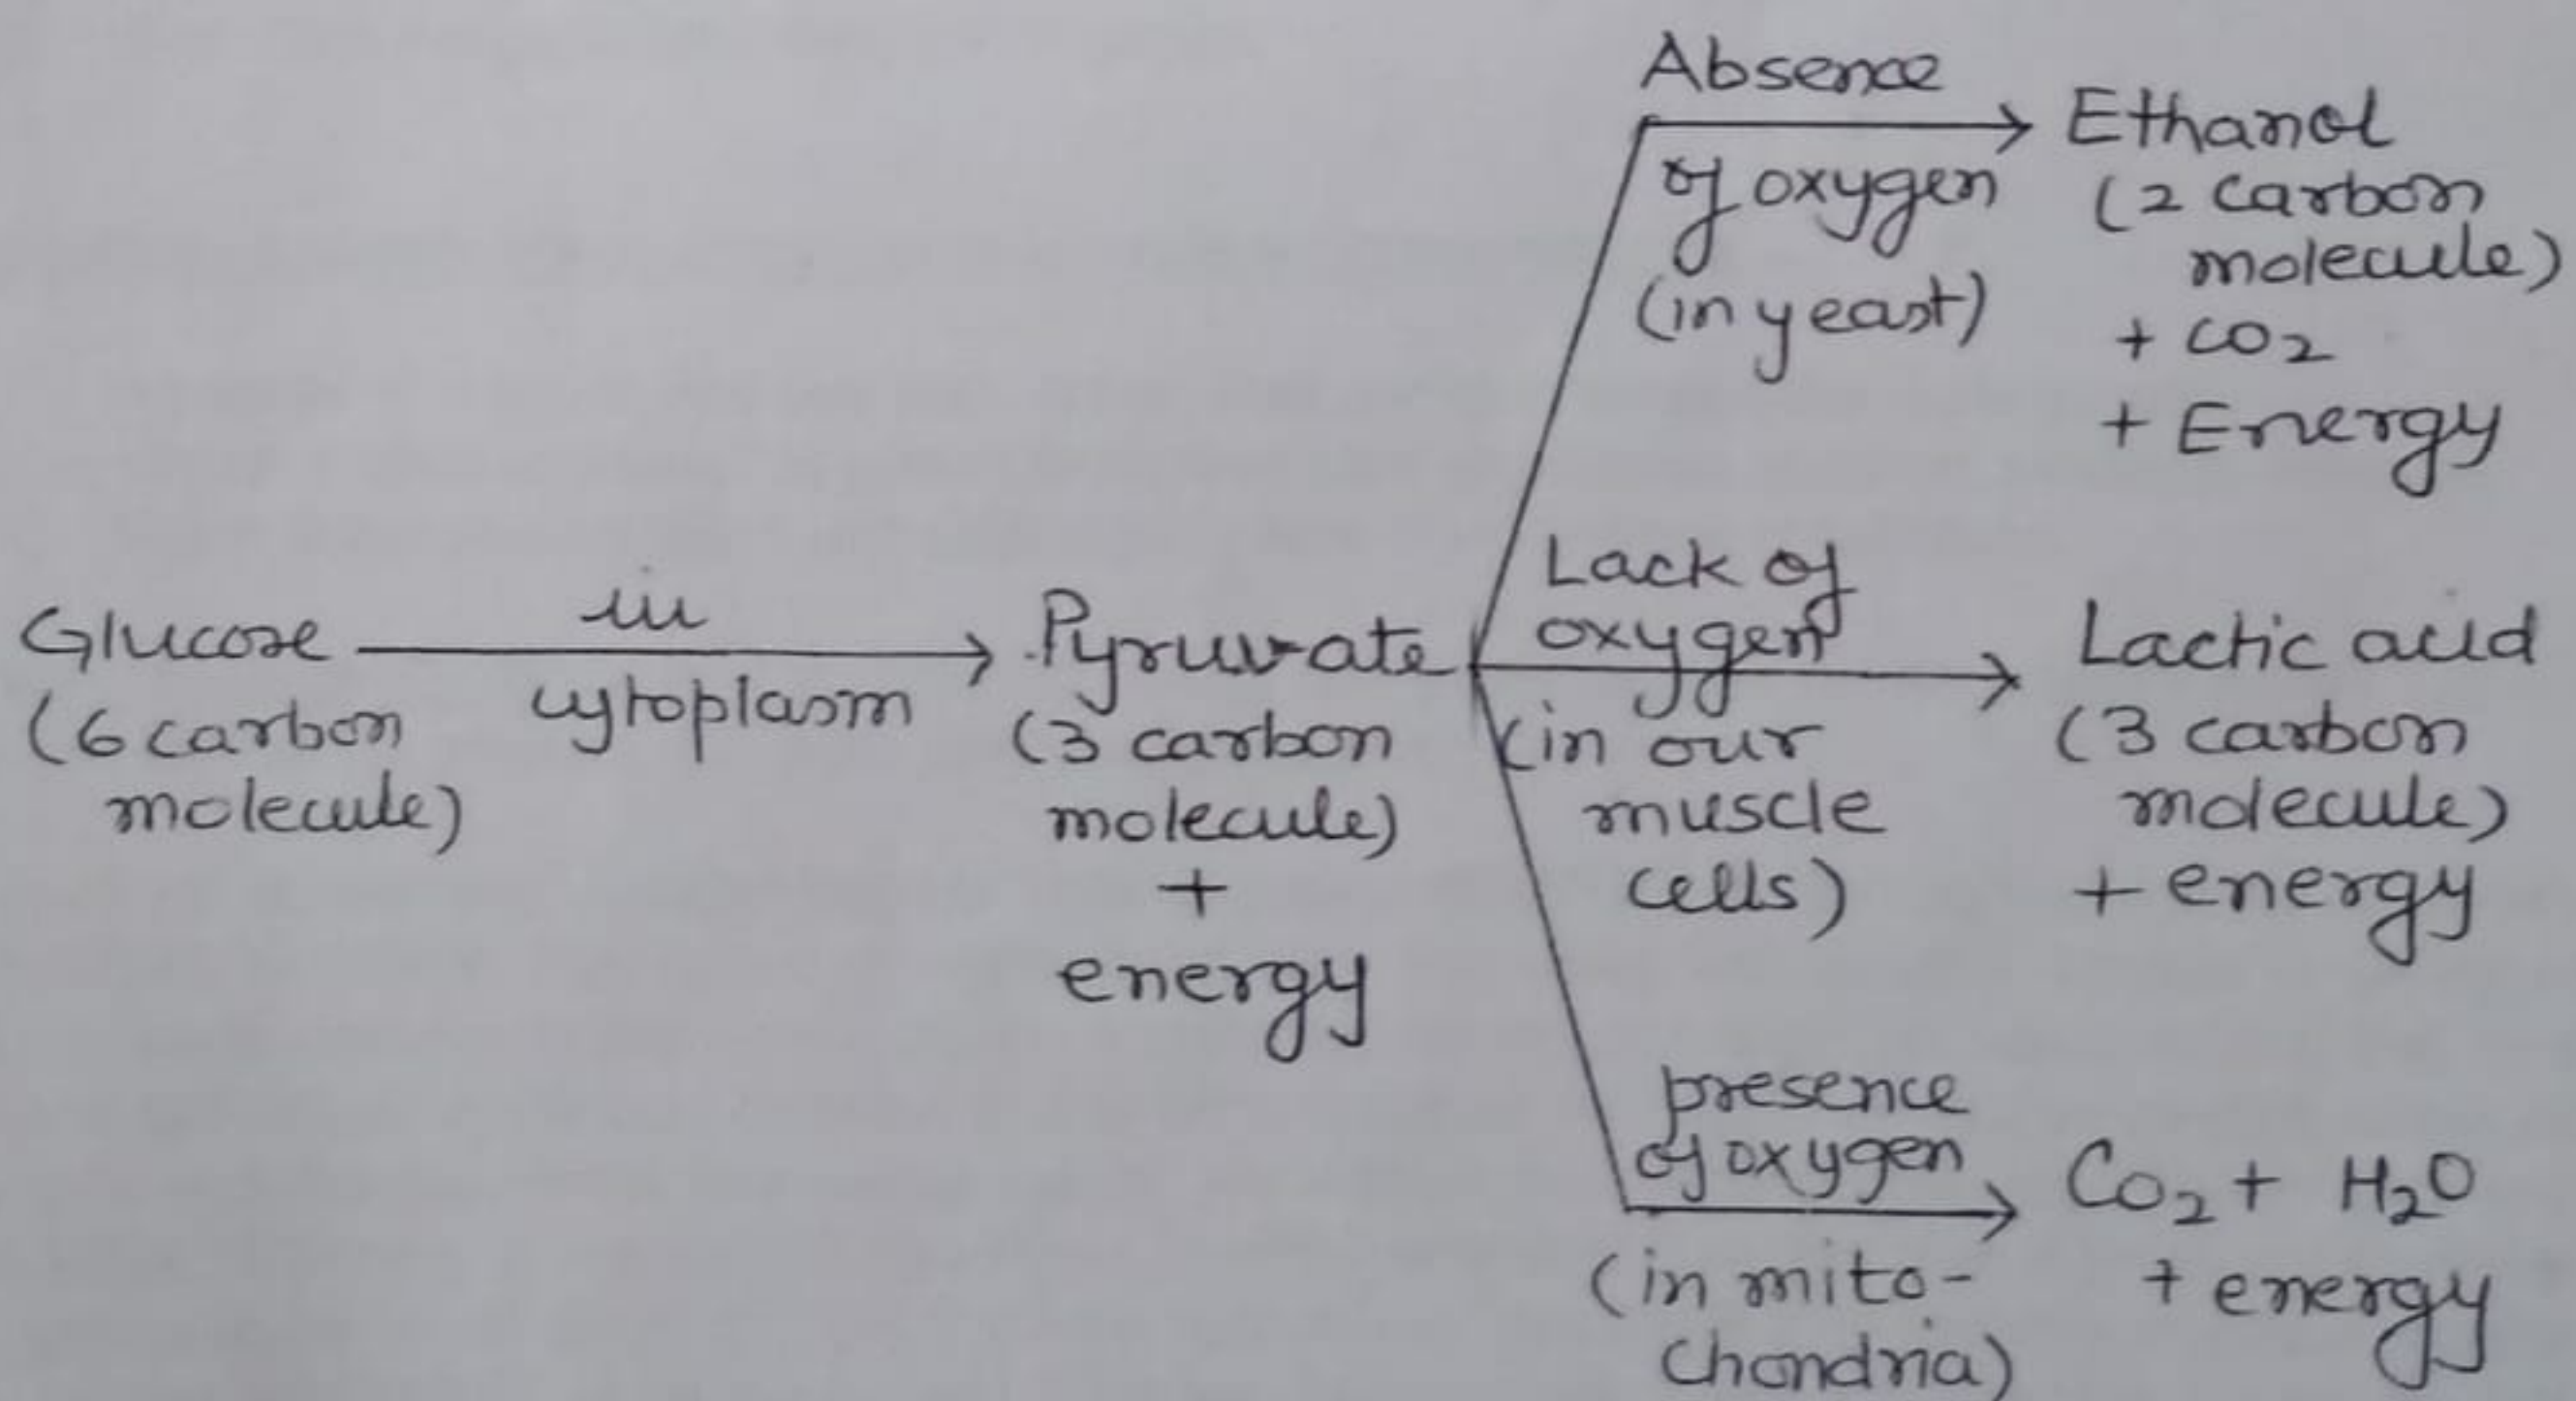 Glucose
(6 carbon
molecule)
in
cytoplasm
Pyruvate
(3 carbon
molecule)
+
energy
Absence
of oxygen
(in yeast)
Ethanol
(2 carbon
molecule)
+ CO2
+ Energy
Lack of
oxygen
(in our
muscle
cells)
Lactic acid
(3 carbon
molecule)
+ energy
presence
of oxygen
(in mito-
chondria)
CO2 + H2O
+ energy